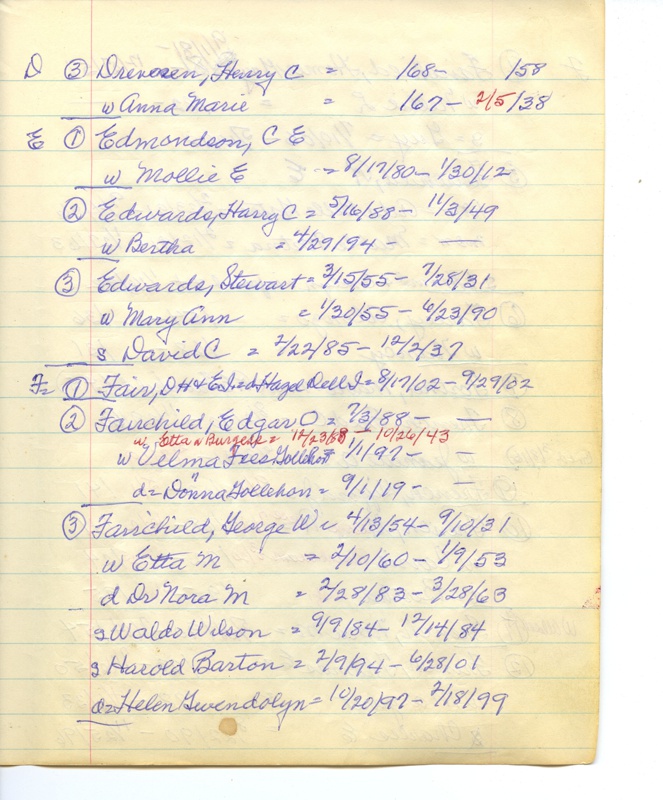 D ③ Drevesen, Henry C = /68- /58
w Anna Marie = /67- 2/5/38
E ① Edmondson, C E
w Mollie E = 8/17/80- 1/30/12
② Edwards, Harry C = 5/16/88- 11/3/49
w Bertha = 4/29/94 - —
③ Edwards, Stewart = 3/15/55- 7/28/31
w Mary Ann = 1/30/55- 6/23/90
s David C = 2/22/85- 12/2/37
F= ① Fair, D H & E I = d Hazel Dell I = 8/17/02- 9/29/02
② Fairchild, Edgar O = 7/3/88- —
w Etta = 12/23/88 - 10/26/43
w Velma Gollehon 1/1/97- —
d = Donna Gollehon = 9/1/19- —
③ Fairchild, George W = 4/13/54- 9/10/31
w Etta M = 2/10/60- 1/9/53
d Dr Nora M = 2/28/83- 3/28/63
s Waldo Wilson = 9/9/84- 12/14/84
s Harold Barton = 2/9/94- 6/28/01
d = Helen Gwendolyn = 10/20/97- 2/18/99